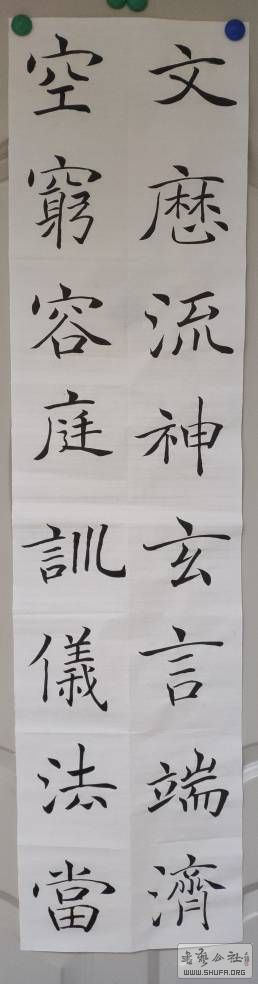 文流神玄言端濟
空窮容庭訓儀法當
书藝公社
WWW.SHUFA.ORG